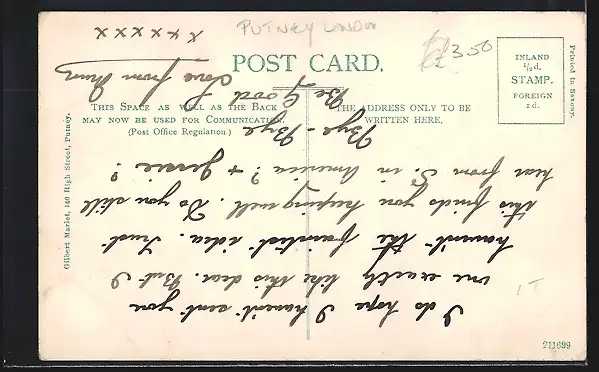 PUTNEY LONDON
£3.50
POST CARD.
THIS SPACE AS WELL AS THE BACK
MAY NOW BE USED FOR COMMUNICATION.
(Post Office Regulation.)
THE ADDRESS ONLY TO BE
WRITTEN HERE.
INLAND
½d.
STAMP.
FOREIGN
1d.
Printed in Saxony.
Gilbert Marlet, 140 High Street, Putney.
211699
I do hope I havent sent you
one exactly like this dear. But I
havent the faintest idea. Trust
this finds you keeping well. Do you still
hear from S. in America? & Jessie?
Bye-Bye
Be Good
Love from
x x x x x